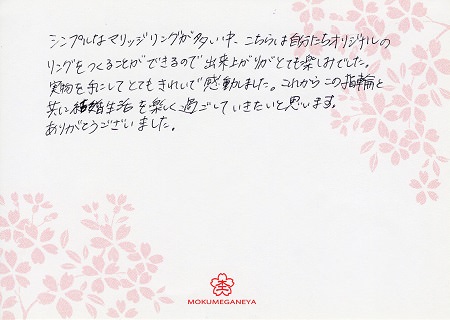 シンプルなマリッジリングが多い中、こちらは自分たちオリジナルの
リングをつくることができるので出来上がりがとても楽しみでした。
実物を手にしてとてもきれいで感動しました。これからこの指輪と
共に結婚生活を楽しく過ごしていきたいと思います。
ありがとうございました。
MOKUMEGANEYA